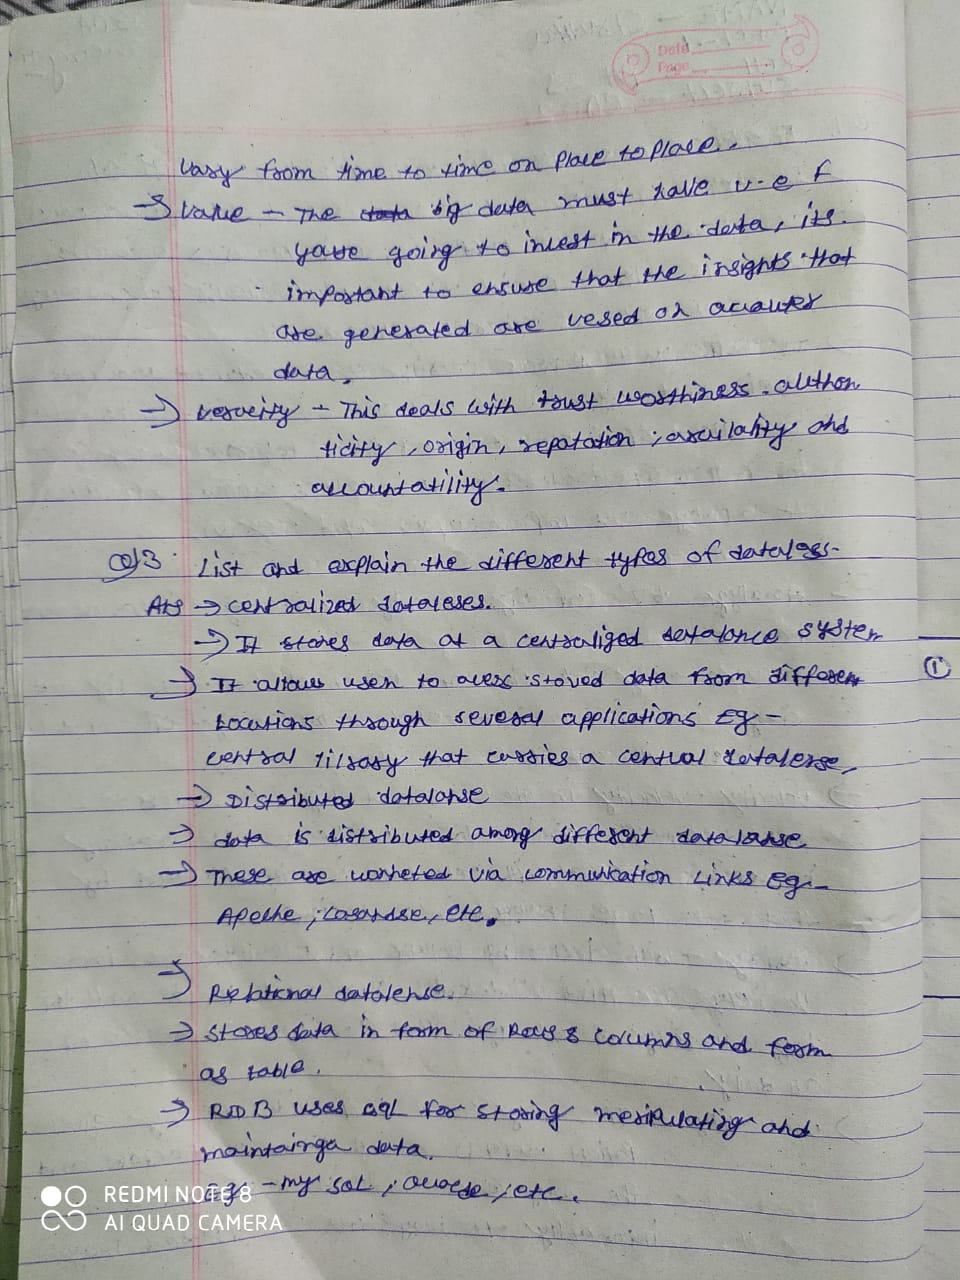 Date
Page
Vary from time to time on place to place.
→ Value - The big data must have
going to invest in the data, its
important to ensure that the insights that
are generated are on
data.
→ veracity - This deals with trust worthiness. authen
ticity, origin, repatation, availality and
accountatility.
Q3 List and explain the different types of
Ans → centralized
→ It stores data at a centraliged system
→ It allows user to stored data from different
Locations through several applications Eg -
central that carries a central
→ Distributed
→ data is distributed among different
→ These are via communication Links Eg -
etc.
→ Relational
→ stores data in form of Rows & columns and form
as table.
→ RDB uses sql for storing and
data.
eg: - my sql, etc.
1
REDMI NOTE 8
AI QUAD CAMERA